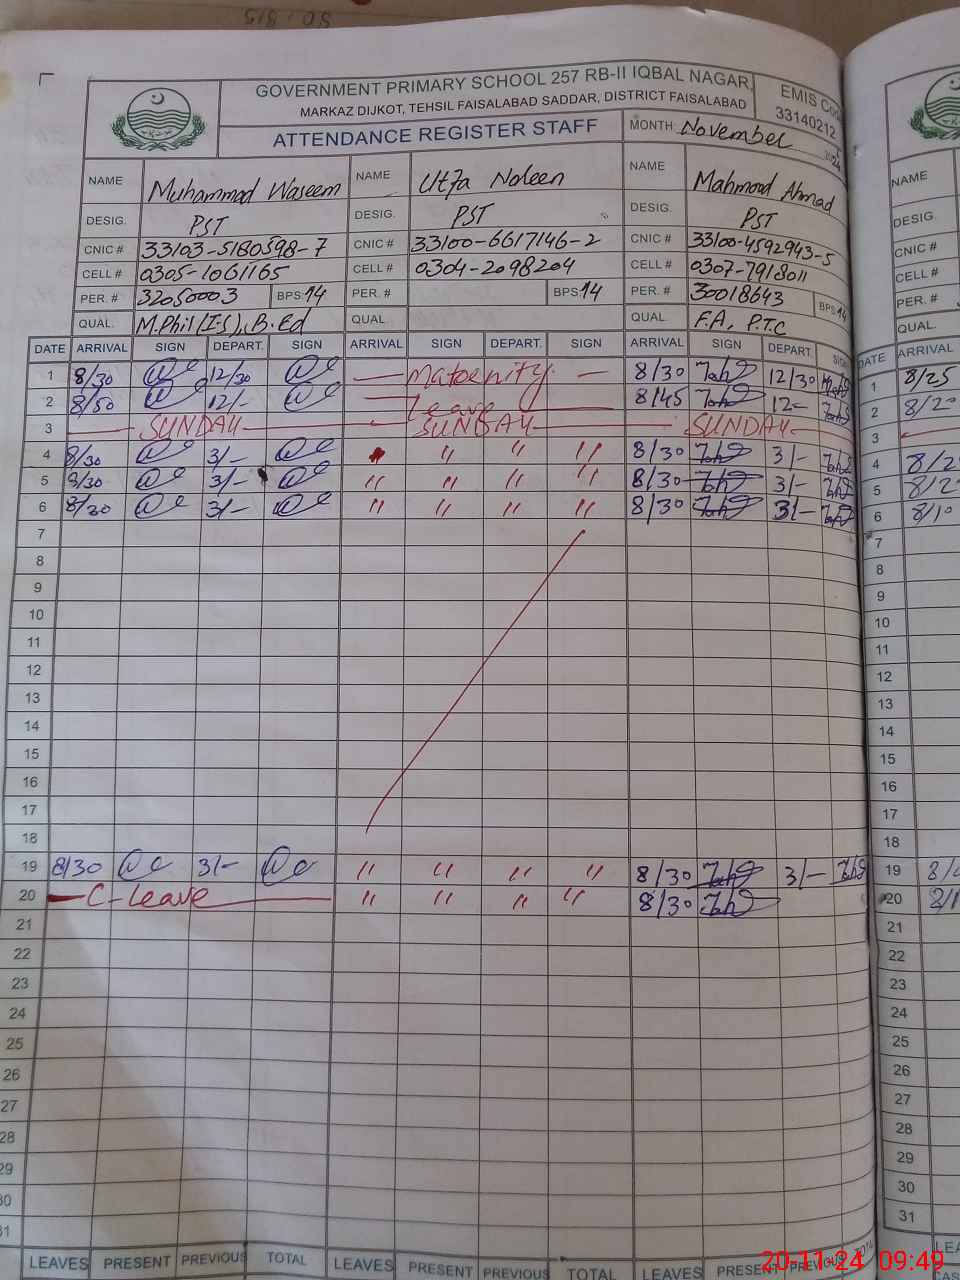 GOVERNMENT PRIMARY SCHOOL 257 RB-II IQBAL NAGAR,
MARKAZ DIJKOT, TEHSIL FAISALABAD SADDAR, DISTRICT FAISALABAD
EMIS Code
33140212
ATTENDANCE REGISTER STAFF
MONTH: November 2024
NAME Muhammad Waseem NAME Noleen NAME Mahmood Ahmad
DESIG. PST DESIG. PST DESIG. PST
CNIC # 33103-5180598-7 CNIC # 33100-6617146-2 CNIC # 33100-4592943-5
CELL # 0305-1061165 CELL # 0304-2098204 CELL # 0307-7918011
PER. # 32050003 BPS:14 PER. # BPS:14 PER. # 30018643 BPS:14
QUAL. M.Phil (I.S), B.Ed QUAL. QUAL. F.A, P.T.C
DATE ARRIVAL SIGN DEPART. SIGN ARRIVAL SIGN DEPART. SIGN ARRIVAL SIGN DEPART. SIGN
1 8/30 12/30 Matoenity 8/30 12/30
2 8/50 12/- Leave 8/45 12-
3 SUNDAY SUNDAY SUNDAY
4 8/30 3/- " " " 8/30 3/-
5 8/30 3/- " " " " 8/30 3/-
6 8/30 3/- " " " " 8/30 3/-
7
8
9
10
11
12
13
14
15
16
17
18
19 8/30 3/- " " " " 8/30 3/-
20 C-Leave " " " " 8/30
21
22
23
24
25
26
27
28
29
30
31
LEAVES PRESENT PREVIOUS TOTAL LEAVES PRESENT PREVIOUS TOTAL LEAVES PRESENT PREVIOUS
NAME
DESIG.
CNIC #
CELL #
PER. #
QUAL.
DATE ARRIVAL
1 8/25
2
3
4
5
6 8/10
7
8
9
10
11
12
13
14
15
16
17
18
19
20
21
22
23
24
25
26
27
28
29
30
31
20-11-24 09:49